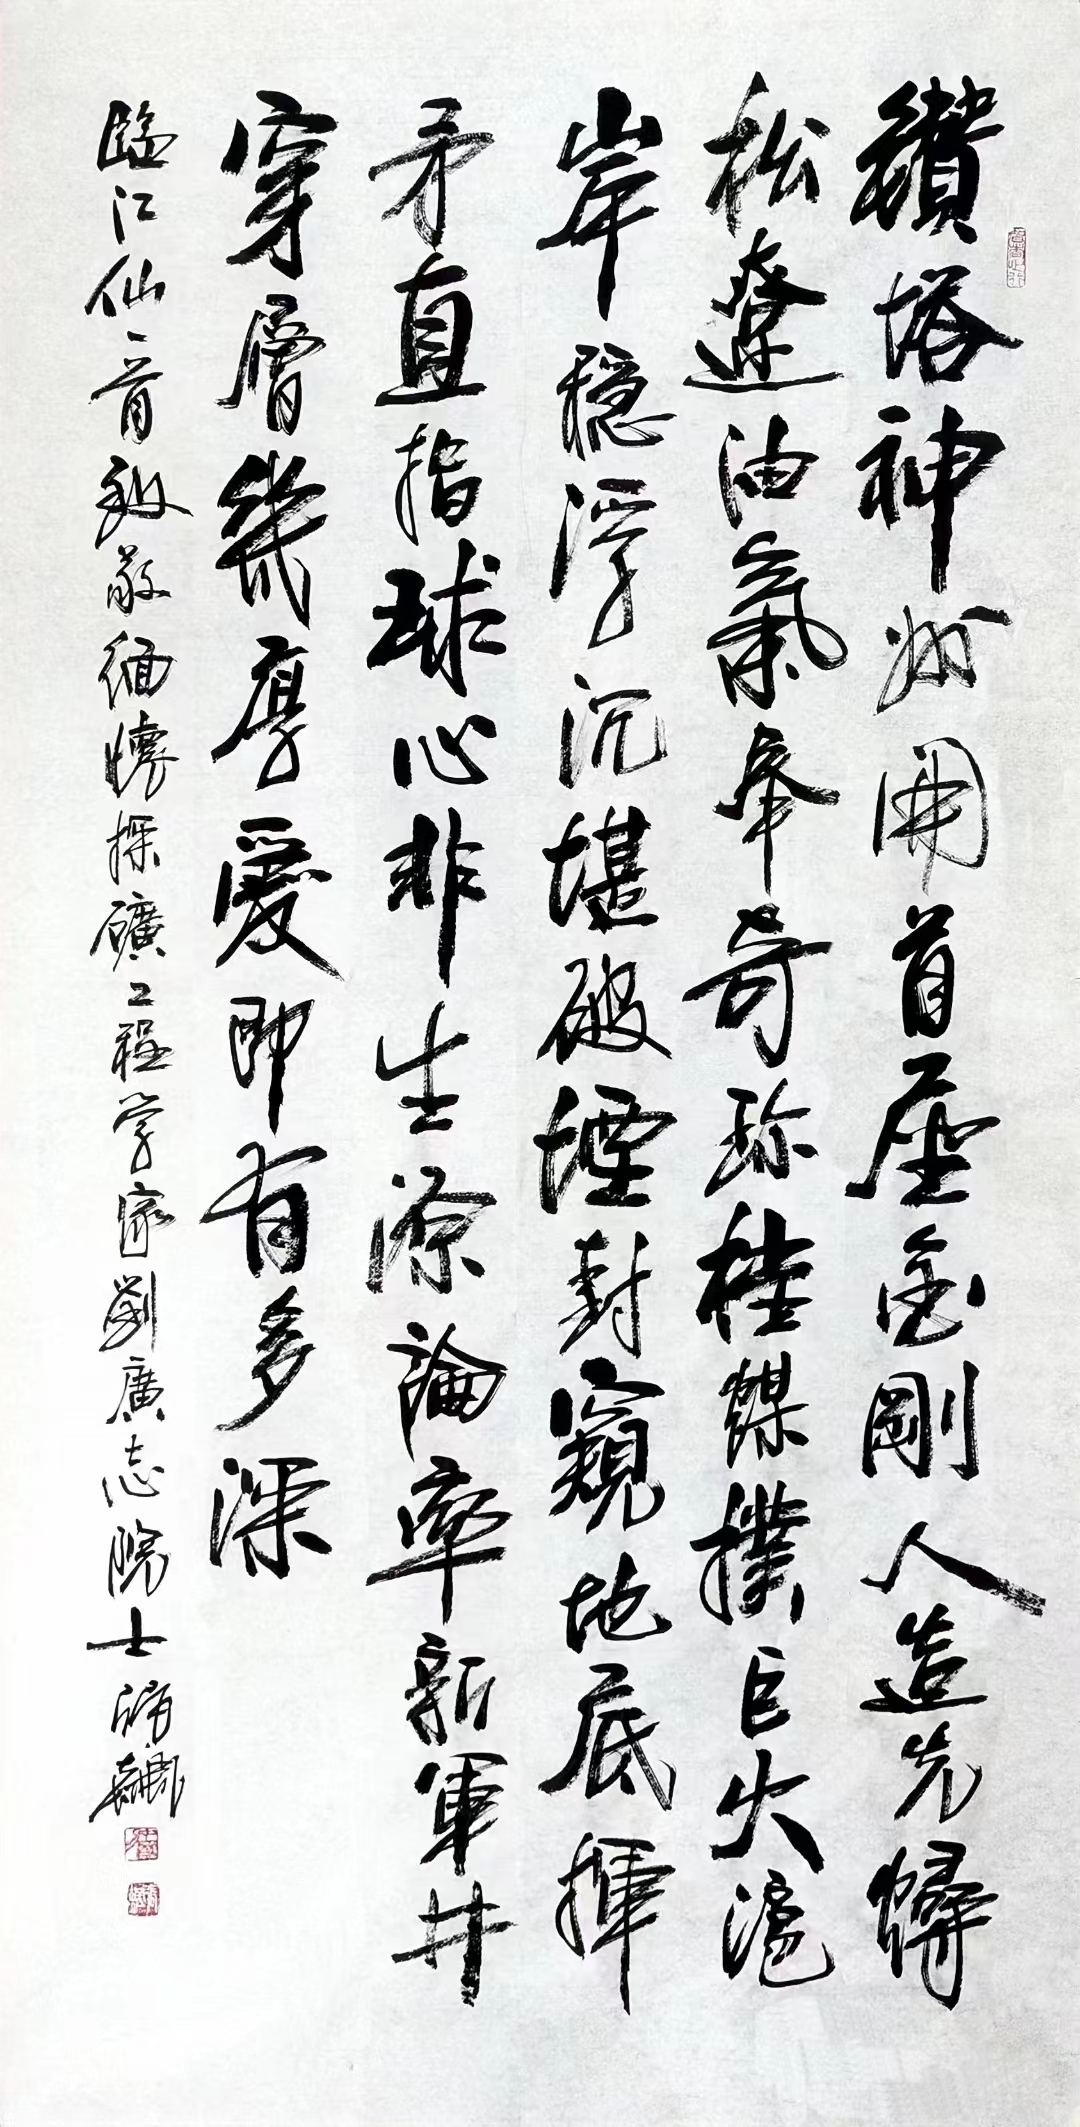 鑽塔神州開首座金剛人造先燖
松遼油氣奉奇珍桂煤撲巨火滬
岸穩浮沉堪破堙封窺地底揮
矛直指球心非生源論率新軍井
穿層幾厚愛即有多深
臨江仙一首致敬緬懷探礦工程學家劉廣志院士